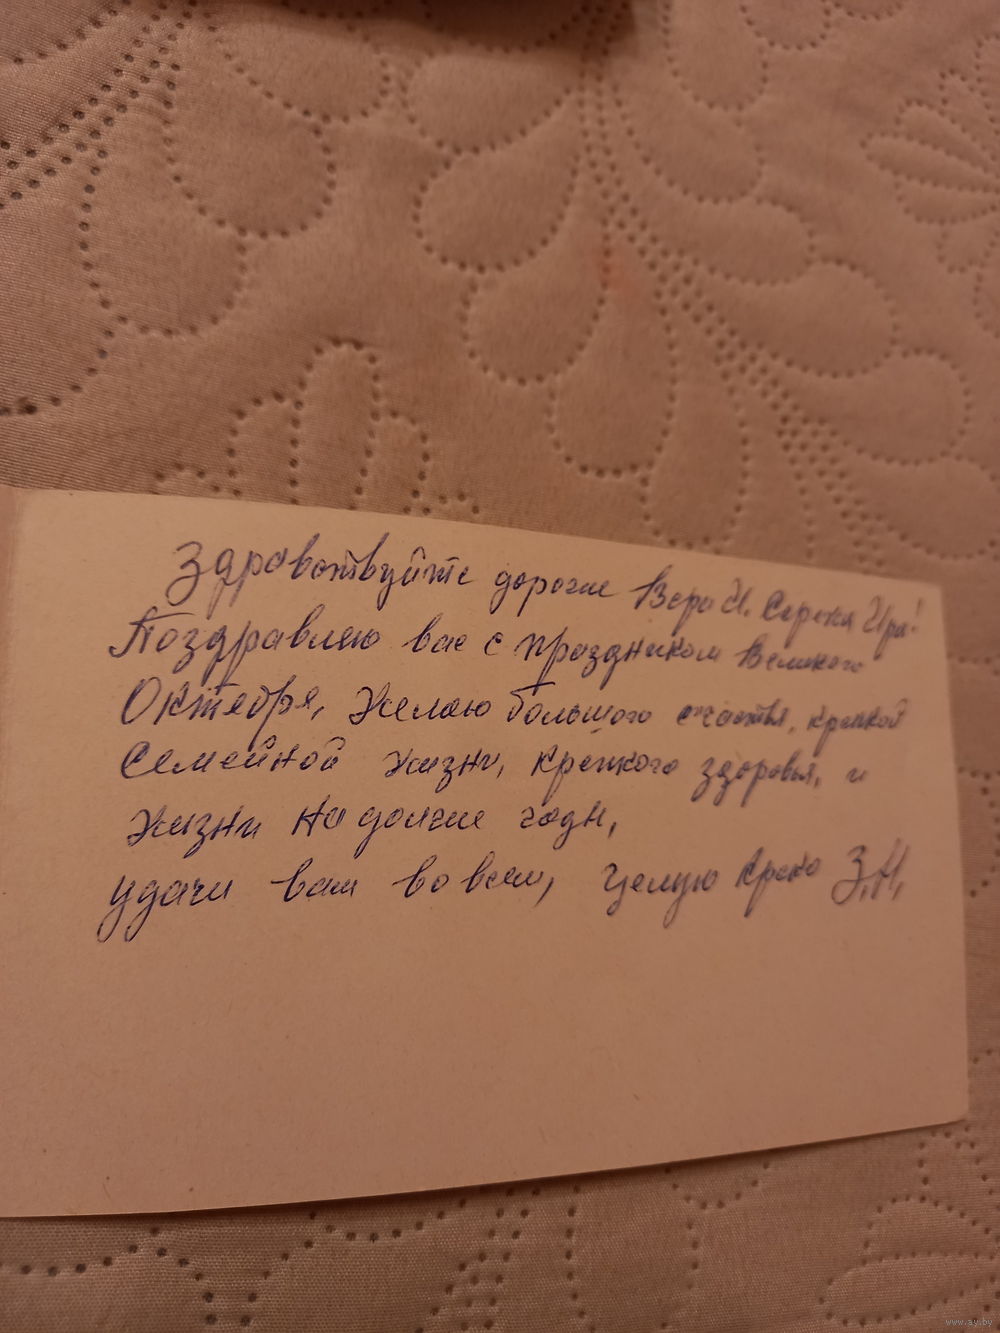 Здравствуйте дорогие Вера И. Сережа Ира!
Поздравляю вас с праздником Великого
Октября, желаю большого счастья, крепкой
семейной жизни, крепкого здоровья, и
жизни на долгие годы,
удачи вам во всем, целую З.Н.
www.ay.by